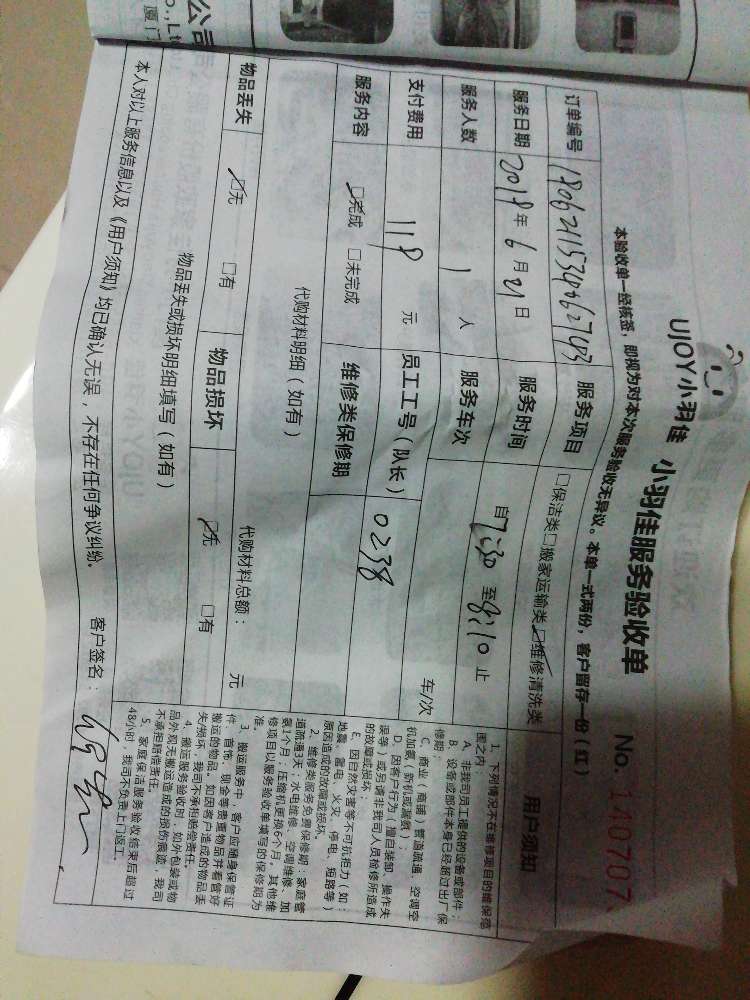 公司
o.,Ltd
厦门
UJOY小羽佳 小羽佳服务验收单 No. 140707
本验收单一经核签，即视为对本次服务验收无异议。本单一式两份，客户留存一份（红）
订单编号 服务项目 □保洁类□搬家运输类☑维修清洗类
服务日期 2018年6月21日 服务时间 自7:30至8:10止
服务人数 1人 服务车次 车/次
支付费用 118元 员工工号（队长） 0238
服务内容 ☑完成 □未完成 维修类保修期
代购材料明细（如有）
代购材料总额： 元
物品丢失 ☑无 □有 物品损坏 ☑无 □有
物品丢失或损坏明细填写（如有）
本人对以上服务信息以及《用户须知》均已确认无误，不存在任何争议纠纷。 客户签名：
用户须知
1、下列情况不在维修项目的维保范
围之内：
A、非我司员工提供的设备或部件；
B、设备或部件本身已经超过出厂保
修期；
C、商业（商铺）管道疏通、空调空
机加氨（新机或漏氨）；
D、因客户行为（擅自装卸、操作失
误等）或另请非我司人员检修所造成
的故障或损坏
E、因自然灾害等不可抗拒力（如：
地震、雷电、火灾、停电、短路等）
原因造成的故障或损坏。
2、维修类服务免费保修期：家庭管
道疏通3天；水电维修、空调维修、加
氨1个月；压缩机更换6个月，其他维
修项目以服务验收单填写的保修期为
准。
3、搬运服务中，客户应随身保管证
件、首饰、现金等贵重物品并看管好
搬运的物品，如因客户造成的物品丢
失/损坏，我司不承担赔偿责任。
4、搬运服务验收时，如外包装或物
品外观无搬运造成的损伤痕迹，我司
不承担赔偿责任。
5、家庭保洁服务验收结束后超过
48小时，我司不负责上门返工。